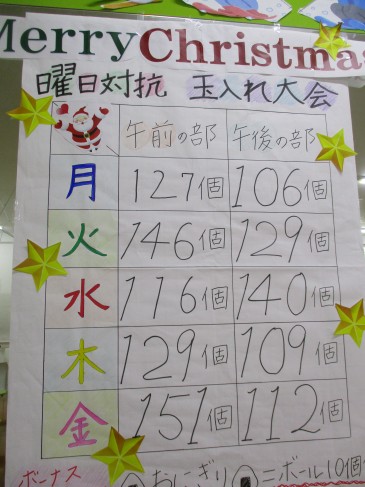 Merry Christmas
曜日対抗 玉入れ大会
午前の部 午後の部
月 127個 106個
火 146個 129個
水 116個 140個
木 129個 109個
金 151個 112個
ボーナス おにぎり ボール10個